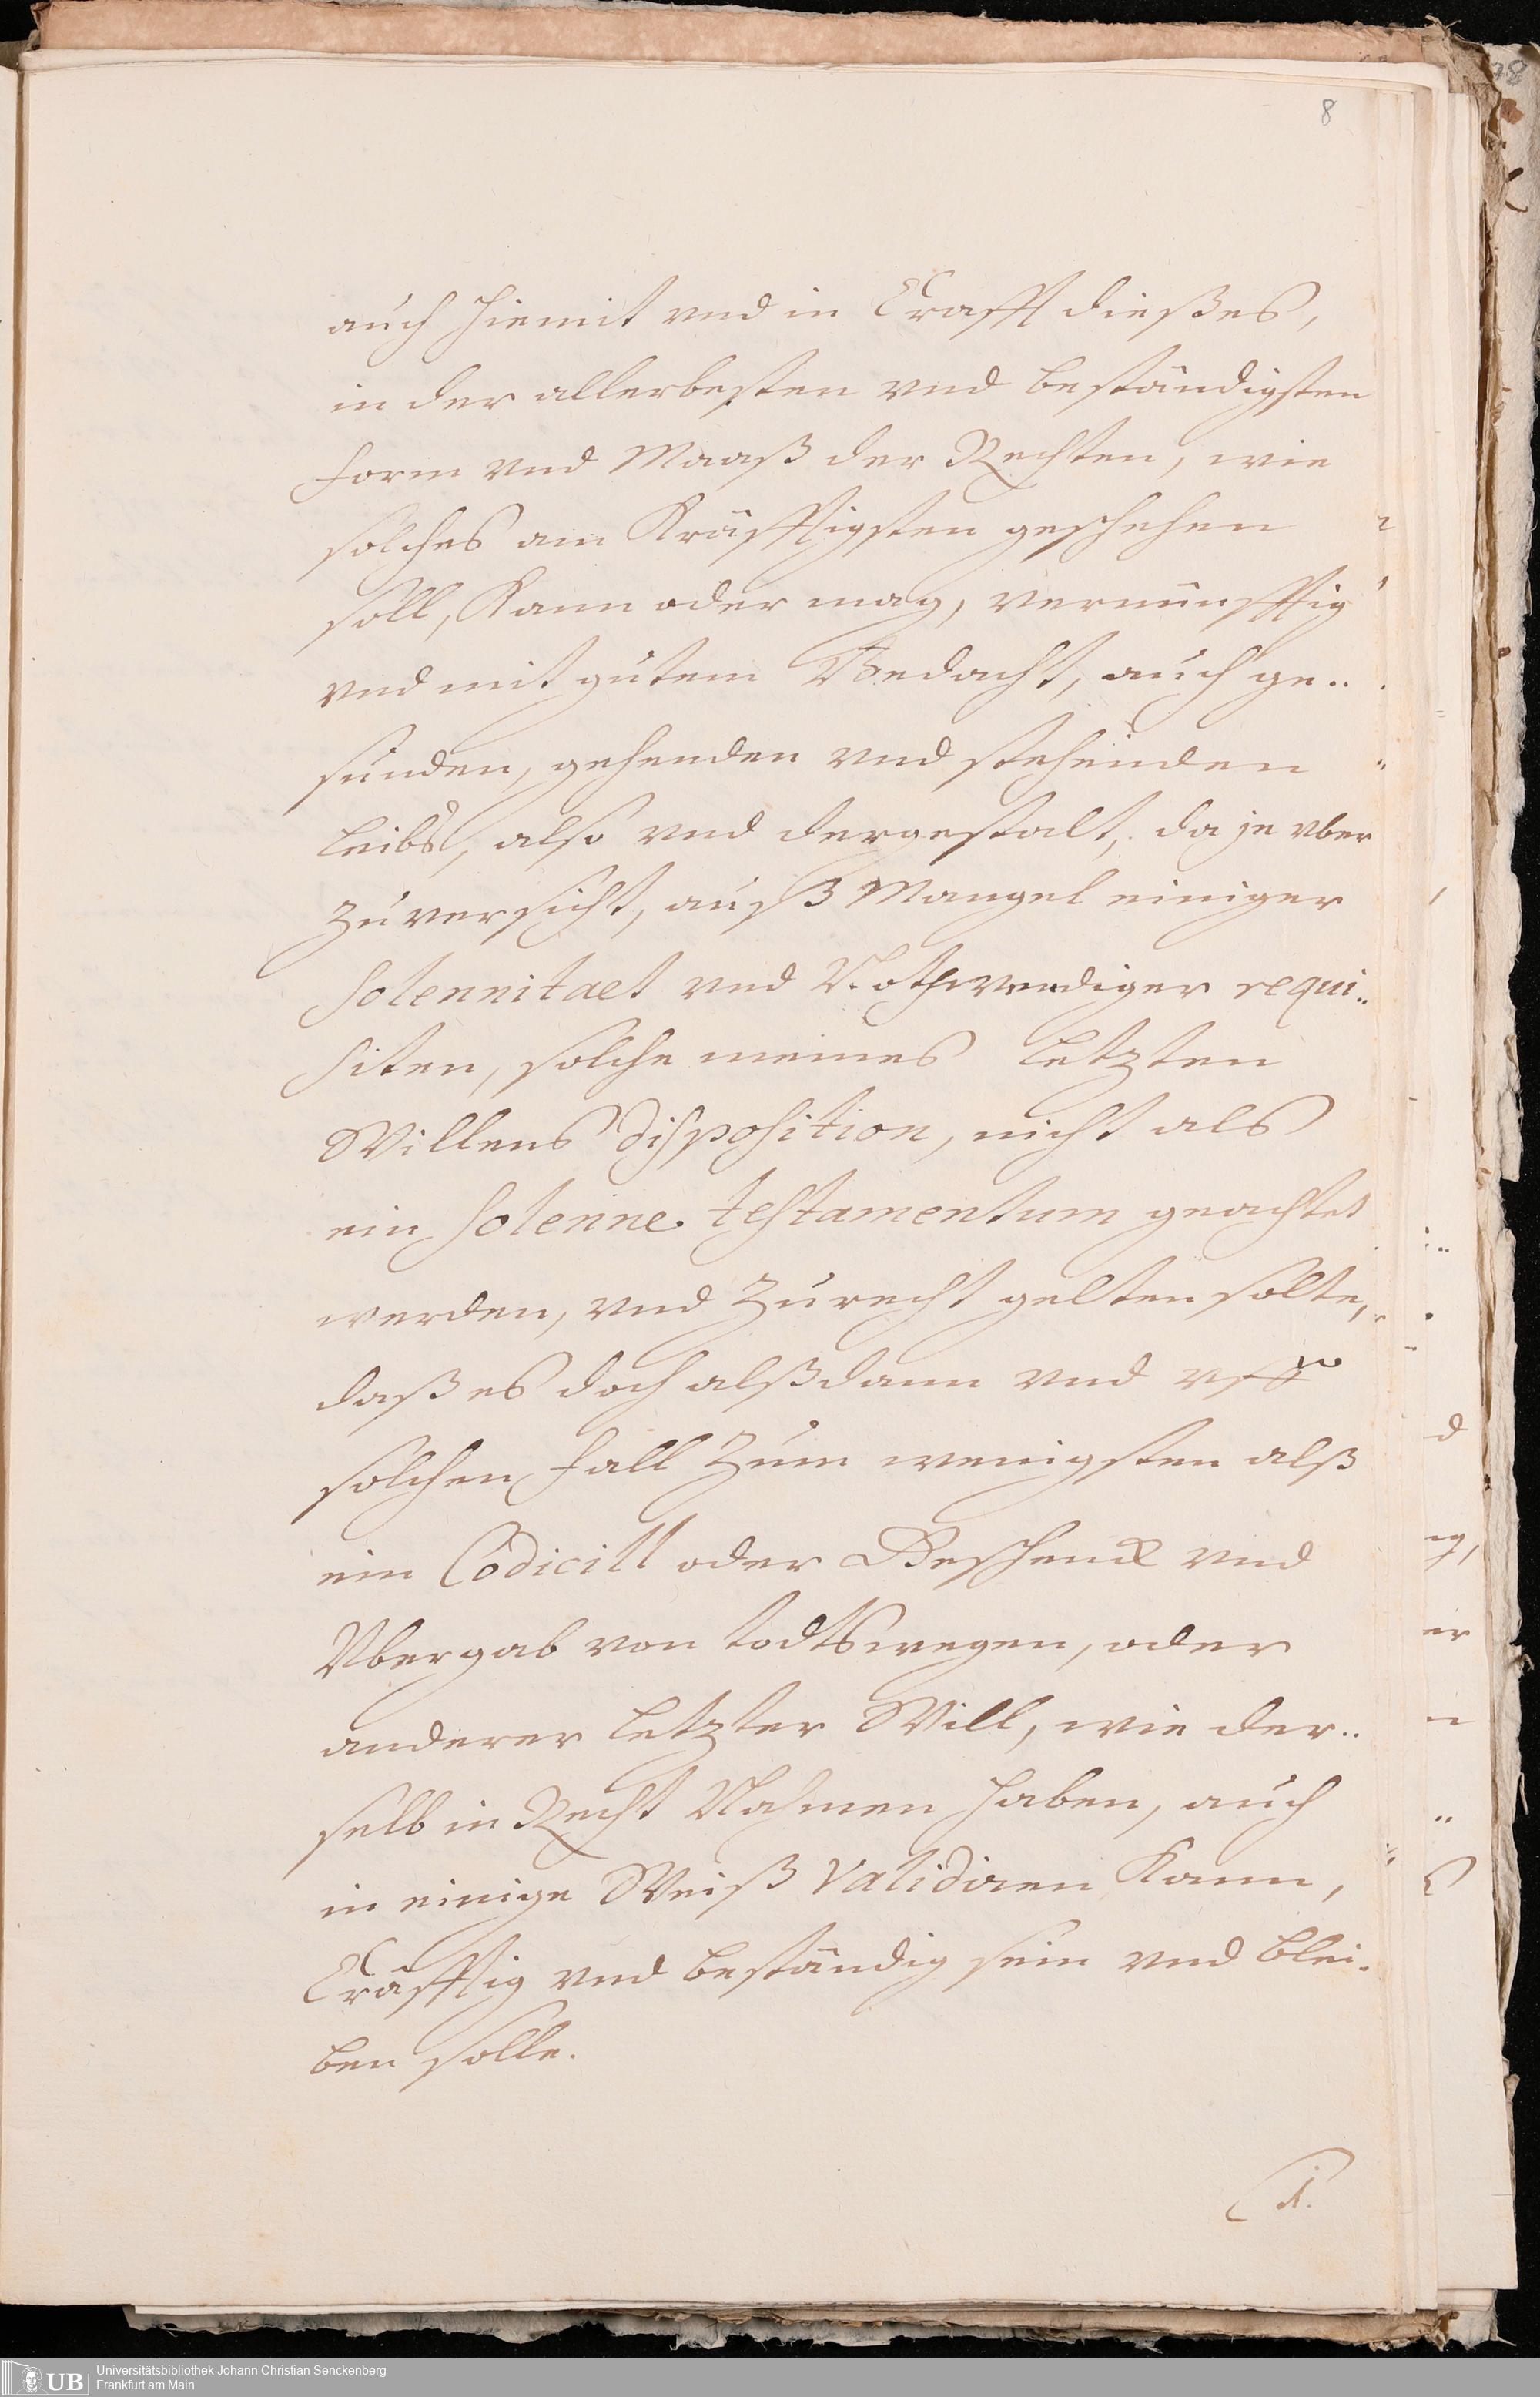 8
auch hiemit vnd in Crafft dießes,
in der allerbesten vnd beständigsten
form vnd Maaß der Rechten, wie
solches am Kräfftigsten geschehen
soll, Kann oder mag, vernünfftig
vnd mit gutem Bedacht, auch ge..
sunden, gehenden vnd stehenden
Leibs, also vnd dergestalt, da je vber
Zuversicht, auß Mangel einiger
Solennitaet vnd Nothwendiger requi..
siten, solche meines Letzten
Willens disposition, nicht als
ein Solenne testamentum geachtet
werden, vnd Zurecht gelten solte,
daß es doch alßdann vnd vff
solchen fall Zum wenigsten alß
ein Codicill oder Geschenck vnd
Vbergab von todtswegen, oder
anderer Letzter Will, wie der..
selb in Recht Nahmen haben, auch
in einige Weiß validiren Kann,
Cräfftig vnd beständig sein vnd blei.
ben solle.
Universitätsbibliothek Johann Christian Senckenberg
Frankfurt am Main
UB